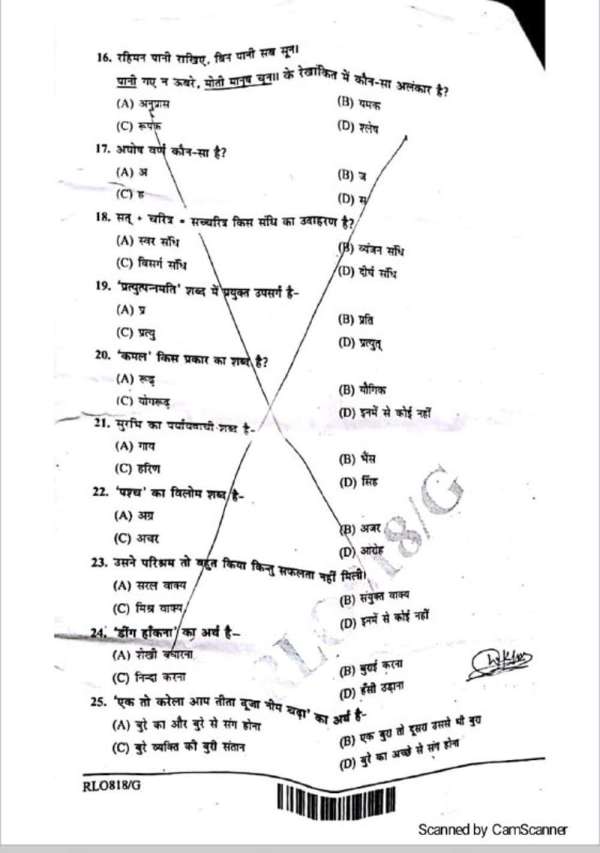 16. रहिमन पानी राखिए, बिन पानी सब सून।
पानी गए न ऊबरे, मोती मानुष चून॥ के रेखांकित में कौन-सा अलंकार है?
(A) अनुप्रास (B) यमक
(C) रूपक (D) श्लेष
17. अघोष वर्ण कौन-सा है?
(A) अ (B) ज
(C) ह (D) म
18. सत् + चरित्र = सच्चरित्र किस संधि का उदाहरण है?
(A) स्वर संधि (B) व्यंजन संधि
(C) विसर्ग संधि (D) दीर्घ संधि
19. 'प्रत्युत्पन्नमति' शब्द में प्रयुक्त उपसर्ग है-
(A) प्र (B) प्रति
(C) प्रत्यु (D) प्रत्युत्
20. 'कमल' किस प्रकार का शब्द है?
(A) रूढ़ (B) यौगिक
(C) योगरूढ़ (D) इनमें से कोई नहीं
21. सुरभि का पर्यायवाची शब्द है-
(A) गाय (B) भैंस
(C) हरिण (D) सिंह
22. 'पश्च' का विलोम शब्द है-
(A) अग्र (B) अजर
(C) अचर (D) आरोह
23. उसने परिश्रम तो बहुत किया किन्तु सफलता नहीं मिली।
(A) सरल वाक्य (B) संयुक्त वाक्य
(C) मिश्र वाक्य (D) इनमें से कोई नहीं
24. 'डींग हाँकना' का अर्थ है–
(A) शेखी बघारना (B) बुराई करना
(C) निन्दा करना (D) हँसी उड़ाना
25. 'एक तो करेला आप तीता दूजा नीम चढ़ा' का अर्थ है-
(A) बुरे का और बुरे से संग होना (B) एक बुरा तो दूसरा उससे भी बुरा
(C) बुरे व्यक्ति की बुरी संतान (D) बुरे का अच्छे से संग होना
RLO818/G
RLO818/G
Scanned by CamScanner